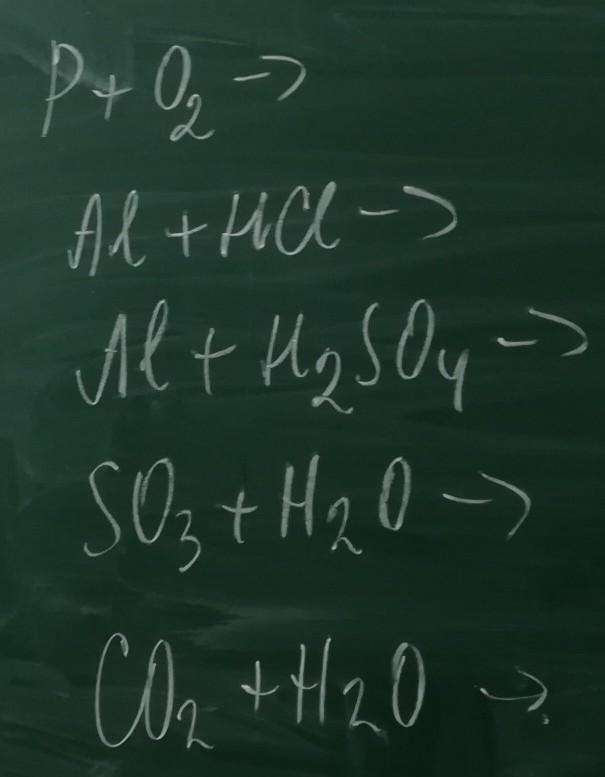 P + O₂ →
Al + HCl →
Al + H₂SO₄ →
SO₃ + H₂O →
CO₂ + H₂O →